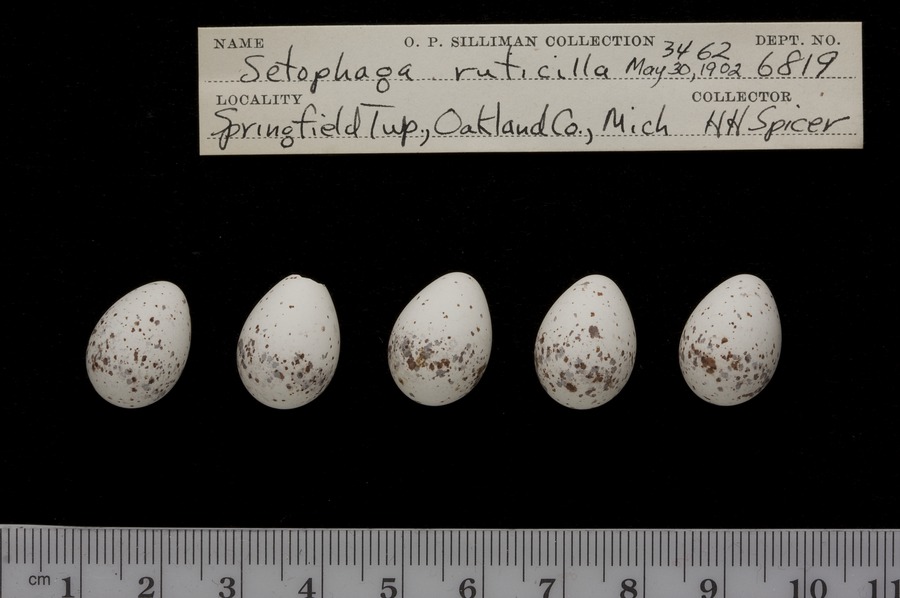 NAME O. P. SILLIMAN COLLECTION 3462 DEPT. NO.
Setophaga ruticilla May 30, 1902 6819
LOCALITY COLLECTOR
Springfield Twp., Oakland Co., Mich HH Spicer
cm 1 2 3 4 5 6 7 8 9 10 11